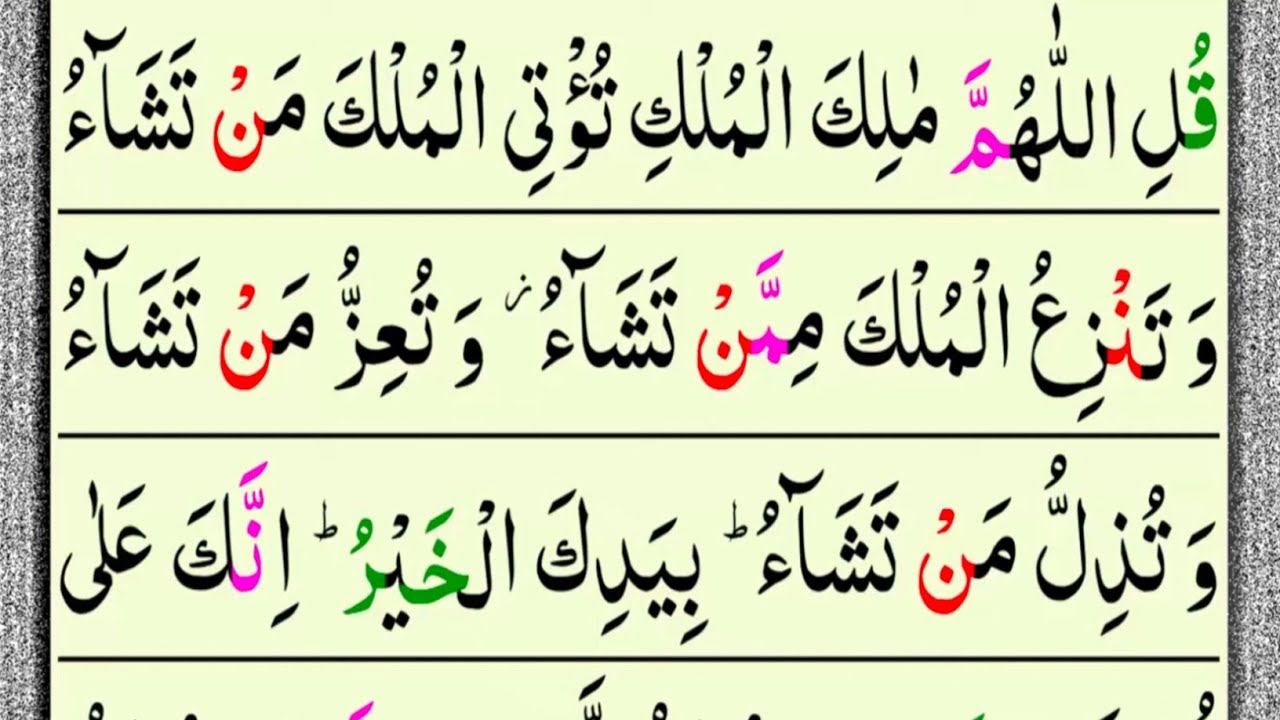 قُلِ اللّٰهُمَّ مٰلِكَ الْمُلْكِ تُؤْتِی الْمُلْكَ مَنْ تَشَآءُ
وَ تَنْزِعُ الْمُلْكَ مِمَّنْ تَشَآءُ ؗ وَ تُعِزُّ مَنْ تَشَآءُ
وَ تُذِلُّ مَنْ تَشَآءُ ؕ بِیَدِكَ الْخَیْرُ ؕ اِنَّكَ عَلٰى